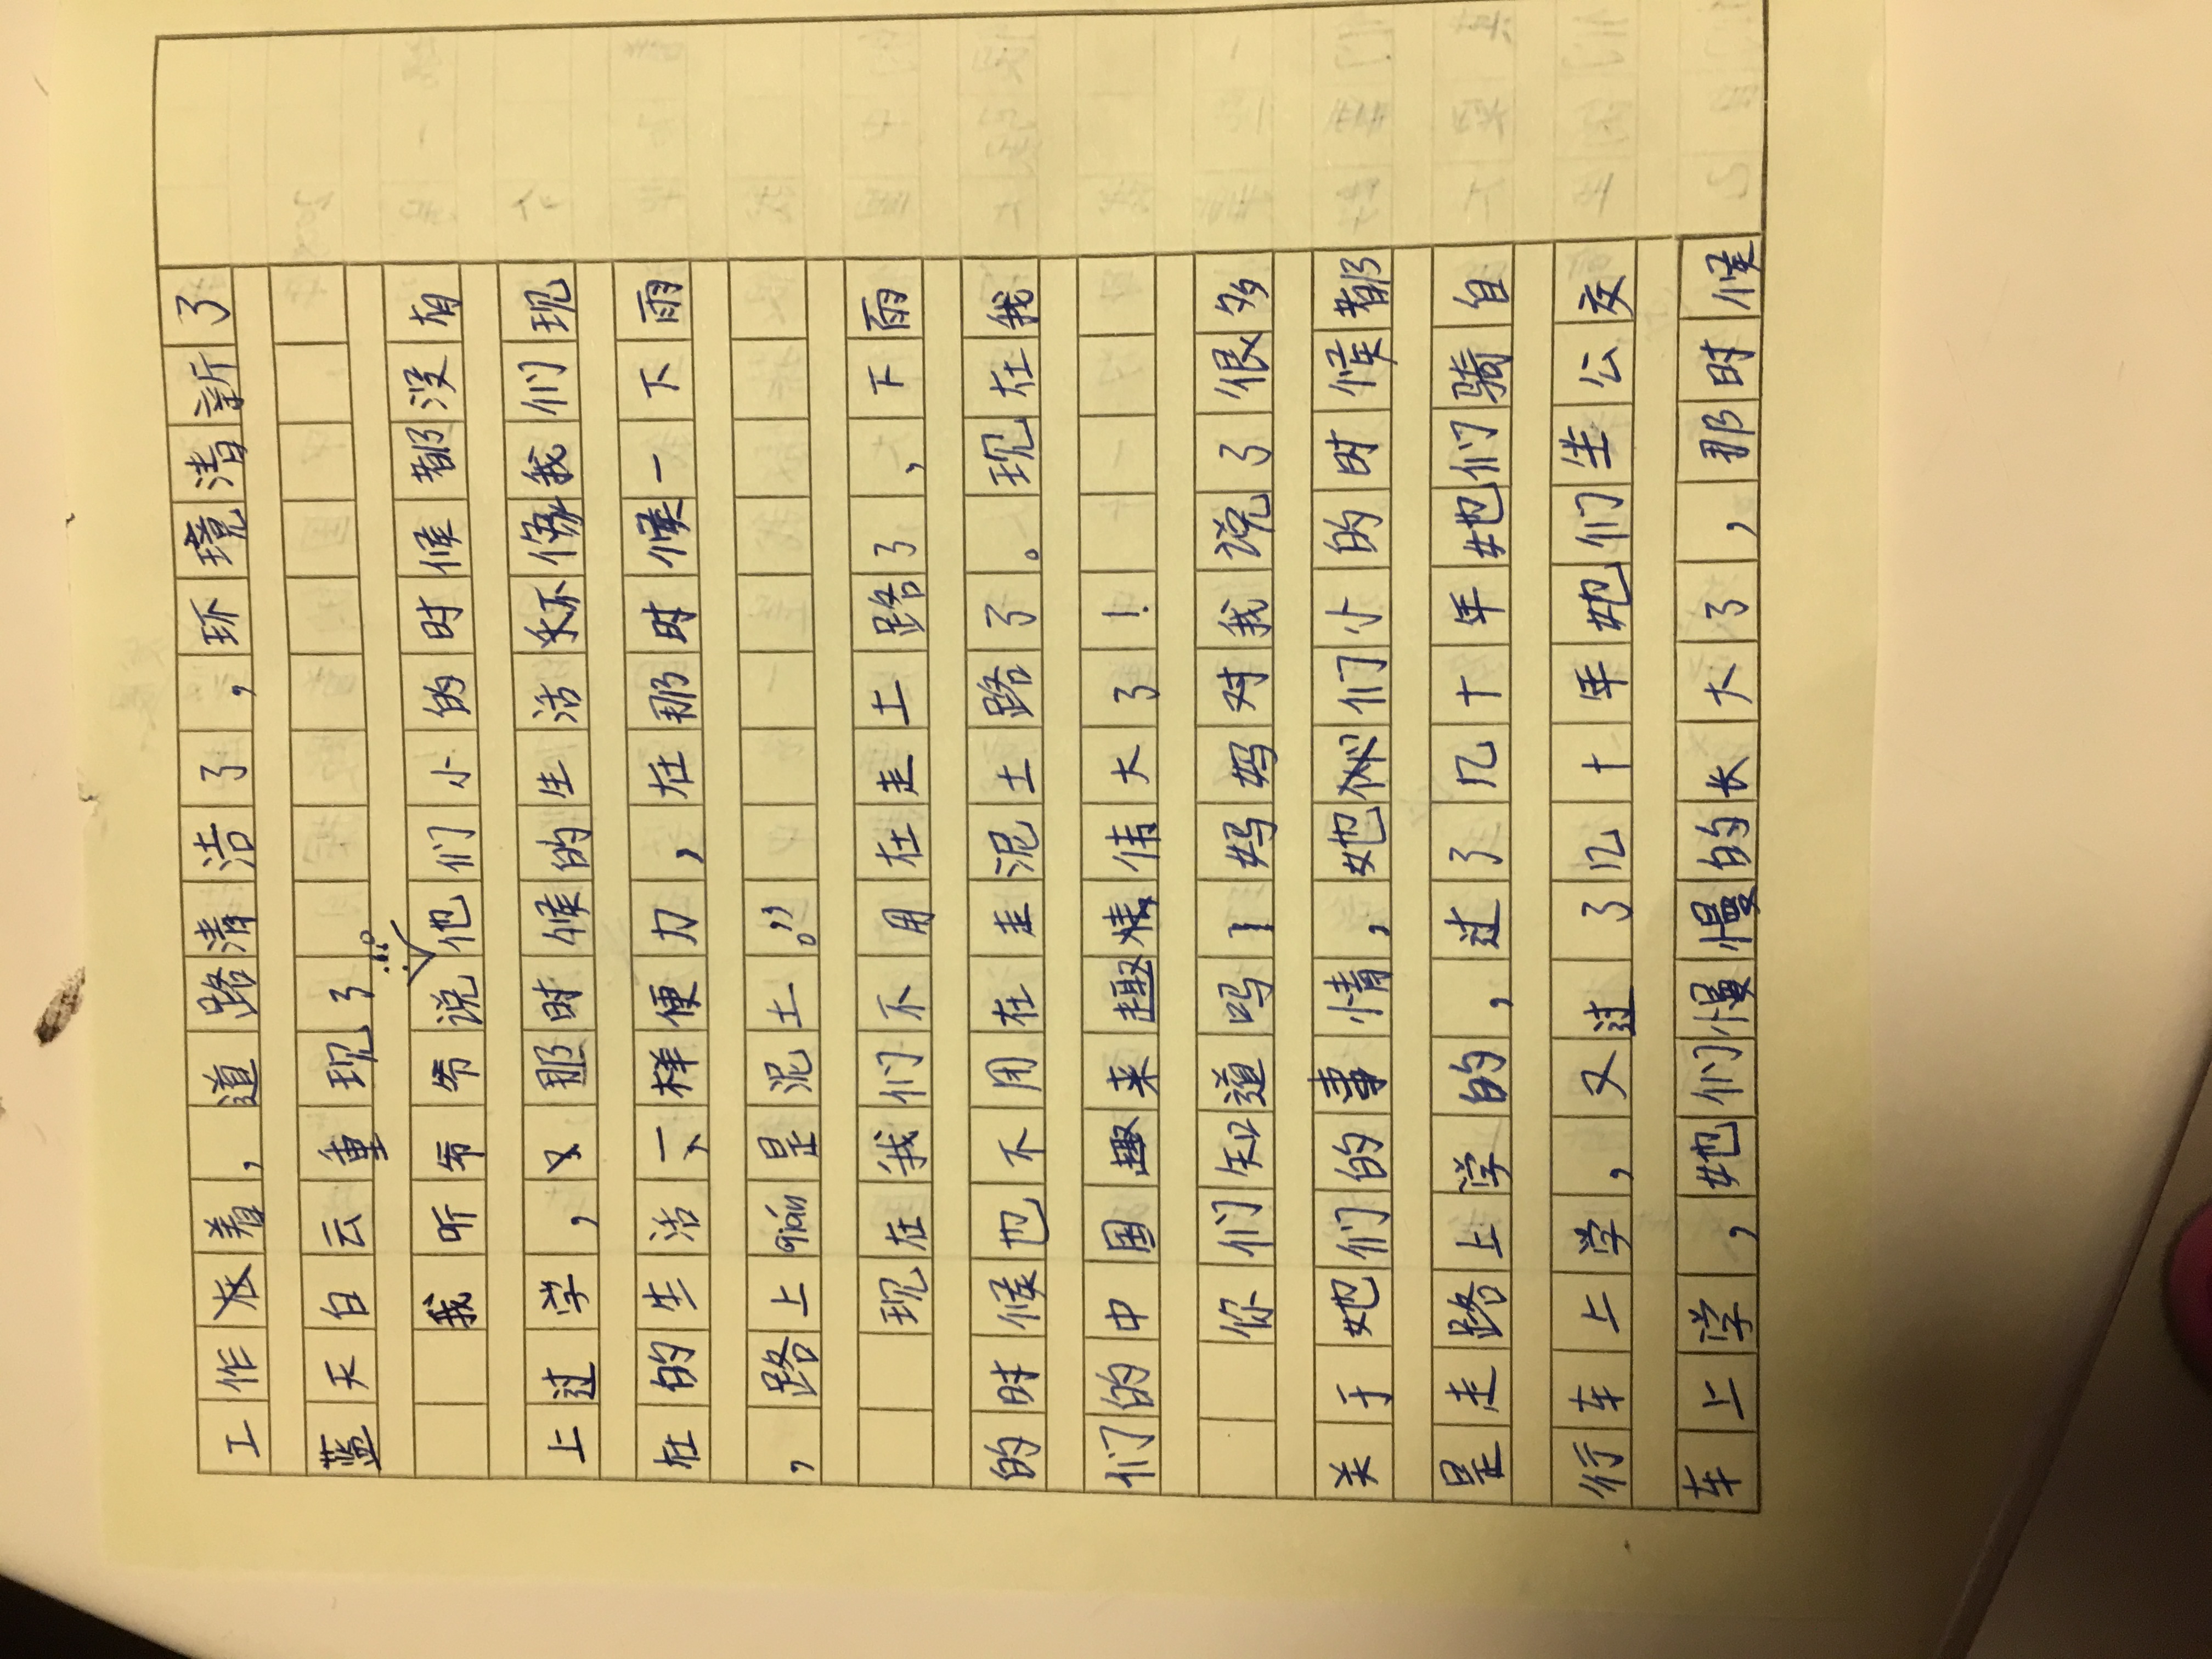 工作着，道路清洁了，环境清新了
蓝天白云重现了。
我听爷爷说：“他们小的时候都没有
上过学，又那时候的生活不像我们现
在的生活一样便力，在那时候一下雨
，路上qián是泥土。”
现在我们不用在走土路了，下雨
的时候也不用在走泥土路了。现在我
们的中国趣来趣伟大了！
你们知道吗？妈妈对我说了很多
关于她们的事情，她们小的时候都
是走路上学的，过了几十年她们骑自
行车上学，又过了几十年她们坐公交
车上学，她们慢慢的长大了，那时候